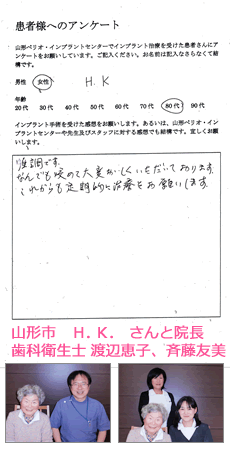 患者様へのアンケート
山形ペリオ・インプラントセンターでインプラント治療を受けた患者さんにア
ンケートをお願いしています。ご記入ください。お名前は記入なさらなくて結
構です。
男性 女性 H.K
年齢
20代 30代 40代 50代 60代 70代 80代 90代
インプラント手術を受けた感想をお願いします。あるいは、山形ペリオ・イン
プラントセンターや先生及びスタッフに対する感想でも結構です。宜しくお願
いします。
調です。
なんでも咬めて大変おいしくいただいております。
これからも定期的に治療をお願いします。
山形市 H.K. さんと院長
歯科衛生士 渡辺恵子、斉藤友美